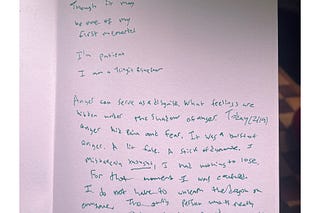 Though it may
be one of my
first memories
I'm patient
I am a
Anger can serve as a disguise. What feelings are
hidden under the shadow of anger. Today
anger hid pain and fear. It was a burst of
anger. A lit fuse. A stick of dynamite. I
I had nothing to lose.
For that moment I was
I do not have to unleash the dragon on
everyone. The only person was